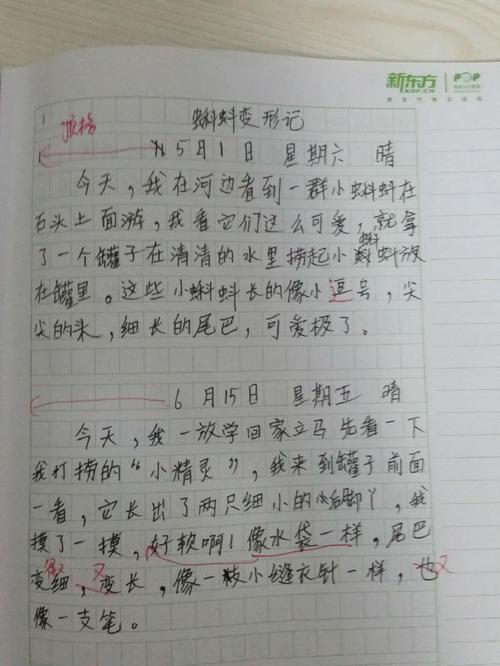 新东方
XDF.CN
POP
顶格
蝌蚪变形记
5月1日 星期六 晴
今天，我在河边看到一群小蝌蚪在
石头上面游，我看它们这么可爱，就拿
了一个罐子在清清的水里捞起小蝌蚪放
在罐里。这些小蝌蚪长的像小逗号，尖
尖的头，细长的尾巴，可爱极了。
6月15日 星期五 晴
今天，我一放学回家立马先看一下
我打捞的“小精灵”，我来到罐子前面
一看，它长出了两只细小的小后脚丫，我
摸了一摸，好软啊！像水袋一样，尾巴
变细，又变长，像一枝小缝衣针一样，也又
像一支笔。